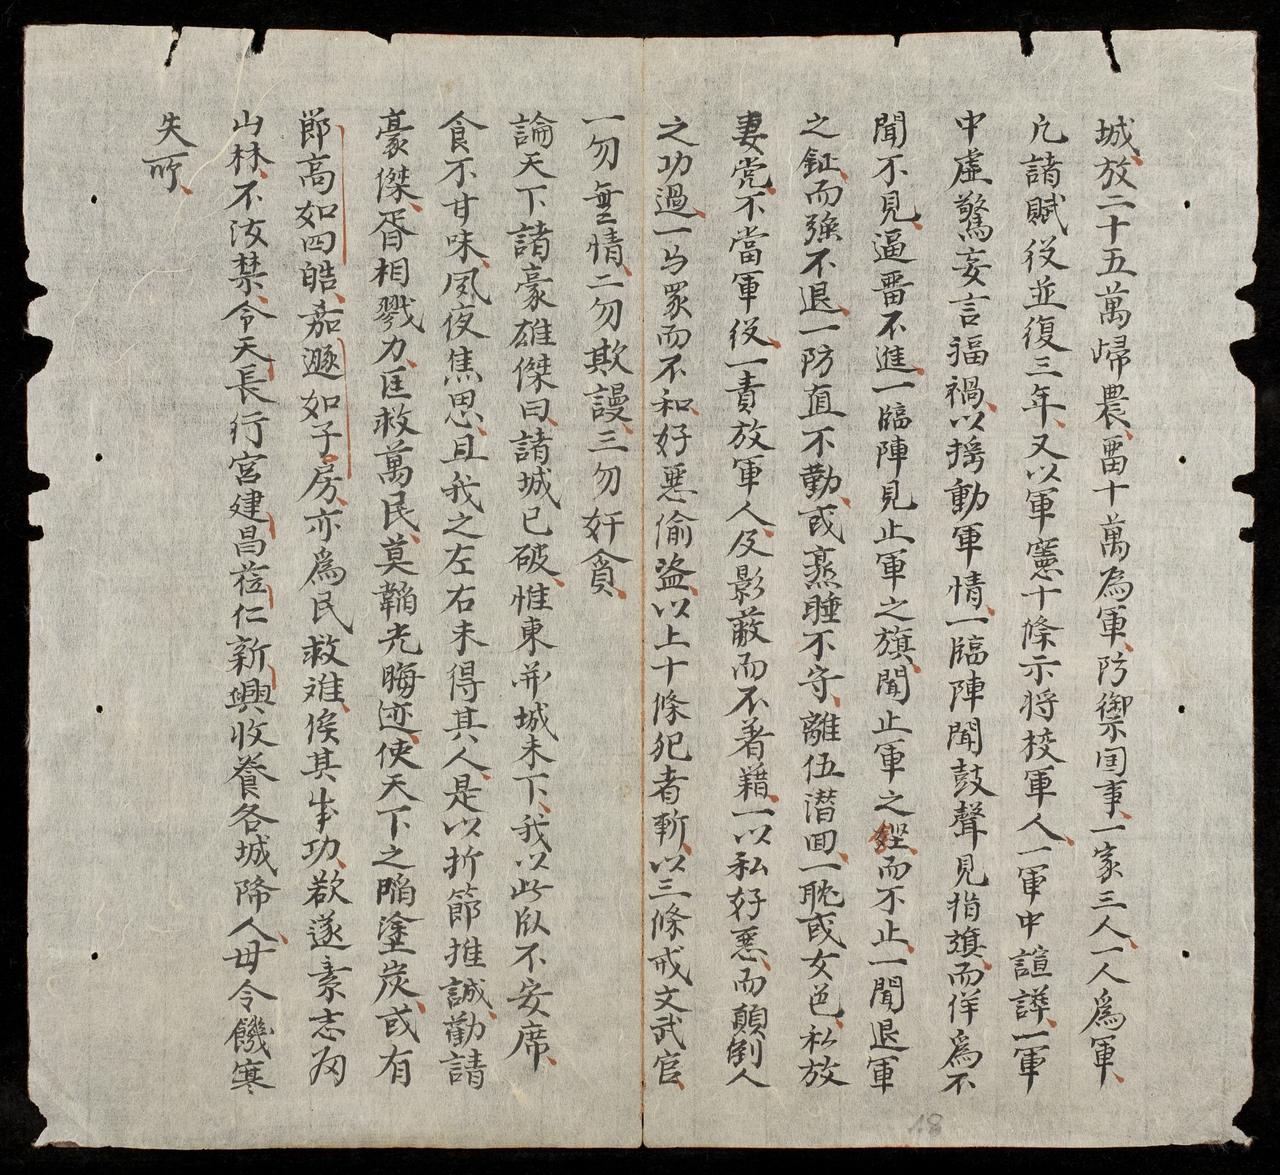 城放二十五萬歸農畱十萬為軍防禦囯事一家三人一人爲軍
凢諸賦役並復三年又以軍憲十條示将校軍人一軍中諠譁一軍
中虚驚妄言福禍以揺動軍情一臨陣聞鼓聲見指旗而佯爲不
聞不見逼畱不進一臨陣見止軍之旗聞止軍之鉦而不止一聞退軍
之鉦而強不退一防直不勤或蒸睡不守離伍潜囬一耽或女色私放
妻党不當軍役一責放軍人及影蔽而不著籍一以私好惡而顛倒人
之功過一与衆而不和好惡偷盗以上十條犯者斬以三條戒文武官
一勿無情二勿欺謾三勿奸貪
論天下諸豪雄傑曰諸城已破惟東関城未下我以此臥不安席
食不甘味夙夜焦思且我之左右未得其人是以折節推誠勸請
豪傑胥相戮力匡救萬民莫韜光晦迹使天下之陷塗炭或有
節高如四皓嘉遯如子房亦爲民救难俟其成功欲遂素志歸
山林不汝禁令天長行宮建昌蒞仁新興收養各城降人毋令饑寒
失所
18